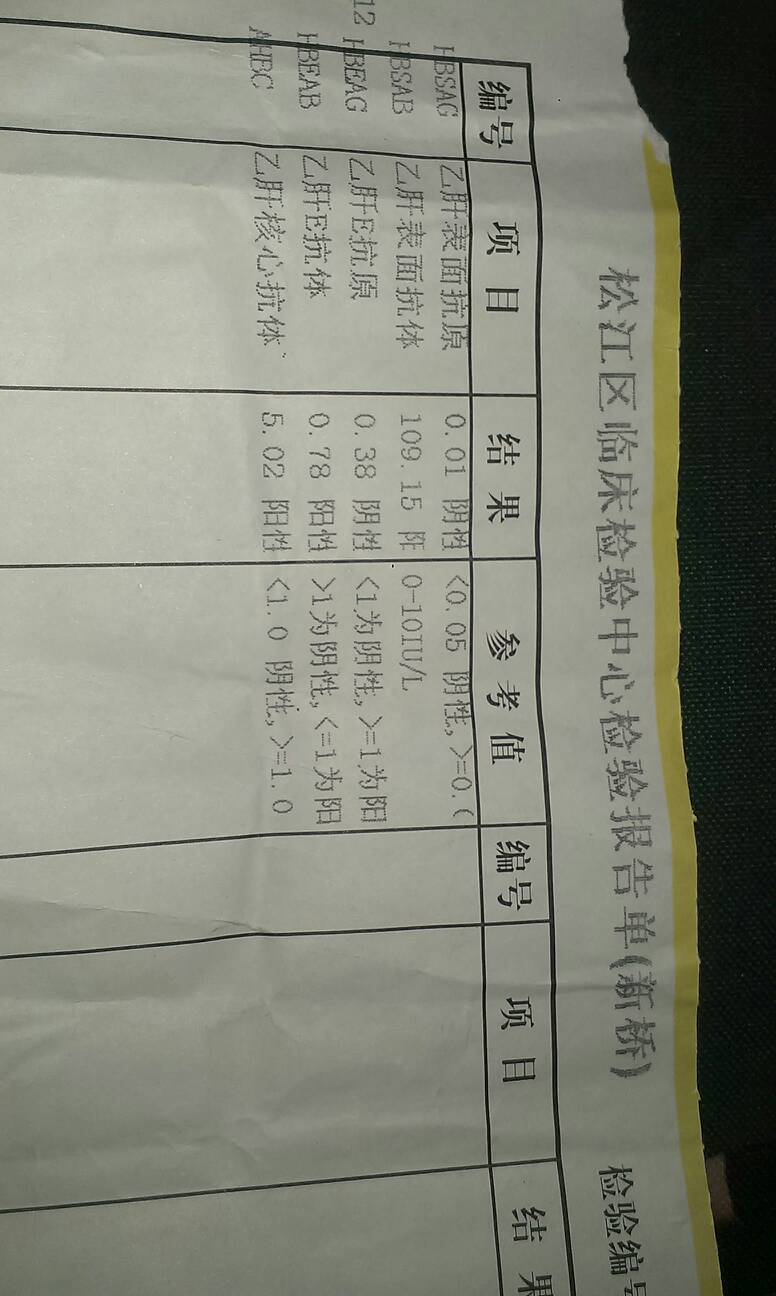 松江区临床检验中心检验报告单(新桥)
检验编号
编号 项目 结果 参考值 编号 项目 结果
HBSAG 乙肝表面抗原 0.01 阴性 <0.05 阴性,>=0.(
HBSAB 乙肝表面抗体 109.15 阳 0-10IU/L
12 HBEAG 乙肝E抗原 0.38 阴性 <1为阴性,>=1为阳
HBEAB 乙肝E抗体 0.78 阳性 >1为阴性,<=1为阳
AHBC 乙肝核心抗体 5.02 阳性 <1.0 阴性,>=1.0